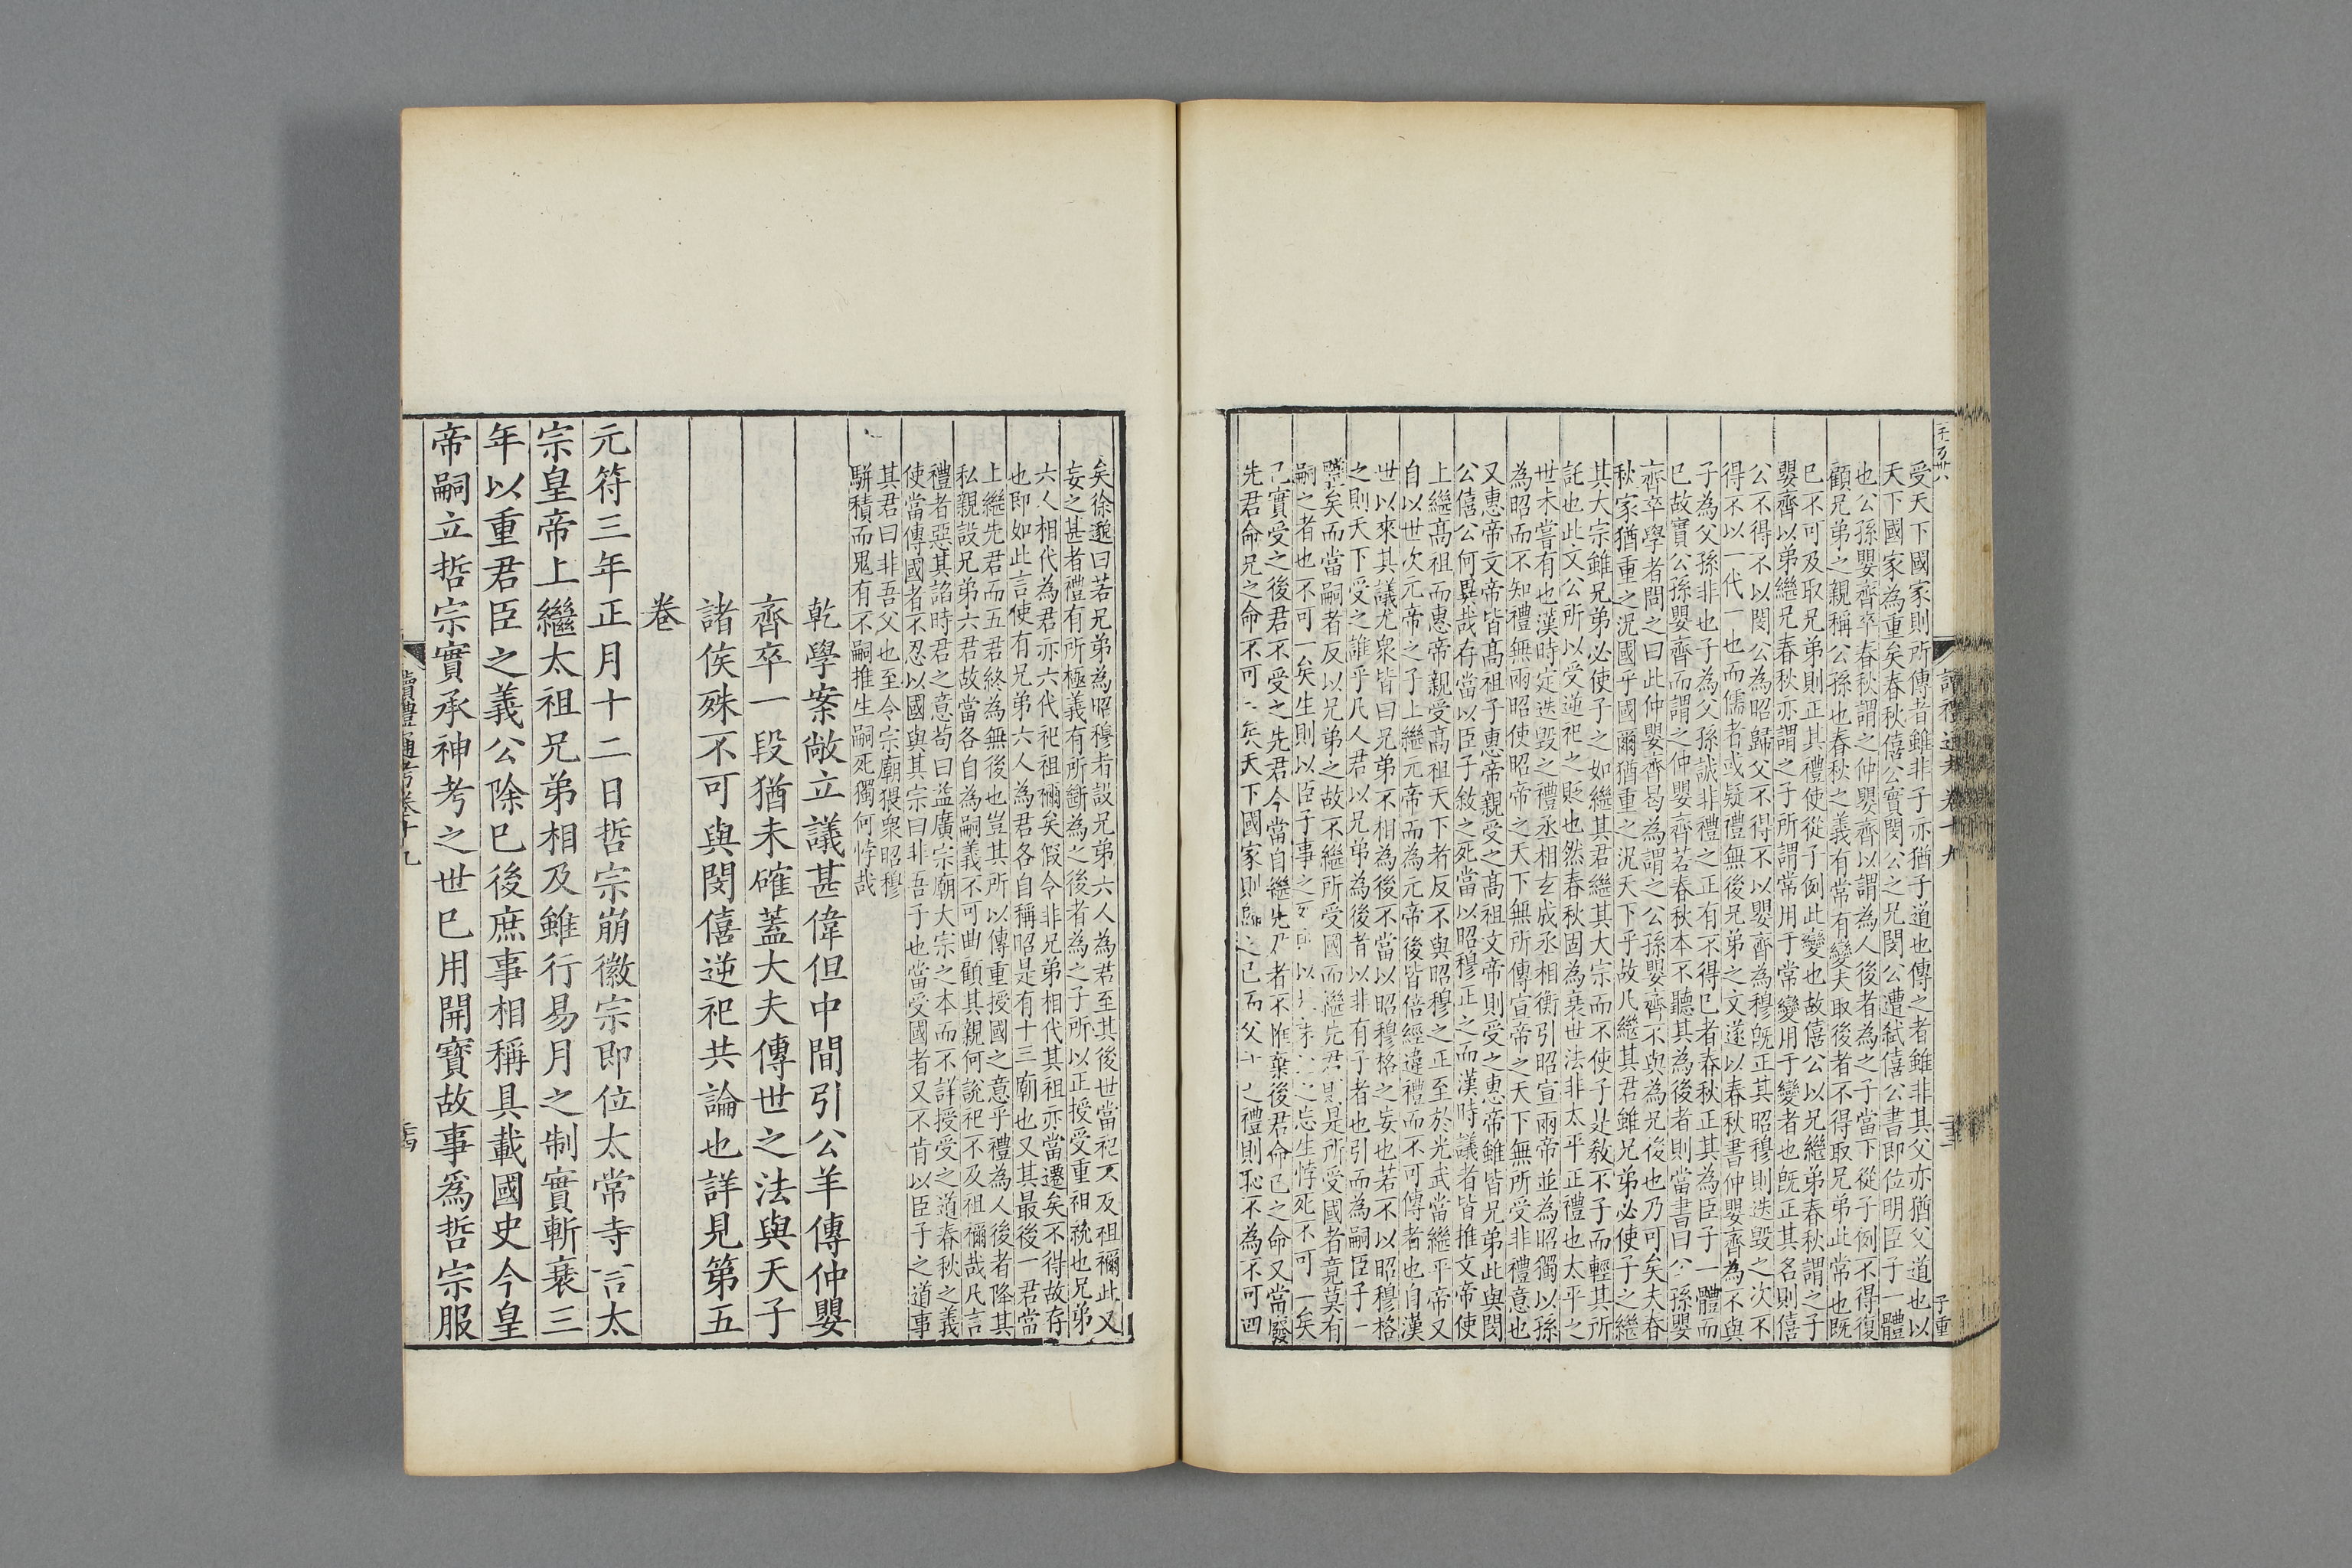 受天下國家則所傳者雖非子亦猶子道也傳之者雖非其父亦猶父道也以
天下國家為重矣春秋僖公實閔公之兄閔公遭弑僖公書即位明臣子一體
也公孫嬰齊卒春秋謂之仲嬰齊以謂為人後者為之子當下從子例不得復
顧兄弟之親稱公孫也春秋之義有常有變夫取後者不得取兄弟此常也既
已不可及取兄弟則正其禮使從子例此變也故僖公以兄繼弟春秋謂之子
嬰齊以弟繼兄春秋亦謂之子所謂常用于常變用于變者也既正其名則僖
公不得不以閔公為昭歸父不得不以嬰齊為穆既正其昭穆則迭毀之次不
得不以一代一也而儒者或疑禮無後兄弟之文遂以春秋書仲嬰齊為不與
子為父孫非也子為父孫誠非禮之正有不得已者春秋正其為臣子一體而
已故實公孫嬰齊而謂之仲嬰齊若春秋本不聽其為後者則當書曰公孫嬰
齊卒學者問之曰此仲嬰齊曷為謂之公孫嬰齊不與為兄後也乃可矣夫春
秋家猶重之況國乎國爾猶重之況天下乎故凡繼其君雖兄弟必使子之繼
其大宗雖兄弟必使子之如繼其君繼其大宗而不使子是教不子而輕其所
託也此文公所以受逆祀之貶也然春秋固為衰世法非太平正禮也太平之
世未嘗有也漢時定迭毀之禮丞相玄成丞相衡引昭宣兩帝並為昭獨以孫
為昭而不知禮無兩昭使昭帝之天下無所傳宣帝之天下無所受非禮意也
又惠帝文帝皆高祖子惠帝親受之高祖文帝則受之惠帝雖皆兄弟此與閔
公僖公何異哉存當以臣子敘之死當以昭穆正之而漢時議者皆推文帝使
上繼高祖而惠帝親受高祖天下者反不與昭穆之正至於光武當繼平帝又
自以世次元帝之子上繼元帝而為元帝後皆倍經違禮而不可傳者也自漢
世以來其議尤衆皆曰兄弟不相為後不當以昭穆格之妄也若不以昭穆格
之則天下受之誰乎凡人君以兄弟為後者以非有子者也引而為嗣臣子一
體矣而當嗣者反以兄弟之故不繼所受國而繼先君則是所受國者竟莫有
嗣之者也不可一矣生則以臣子事之忘生悖死不可一矣
己實受之後君不受之先君今當自繼先君者不惟棄後君命己之命又當廢
先君命兄之命不可二矣天下國家則之已而父子之禮則恥不為不可四
矣徐邈曰若兄弟為昭穆者設兄弟六人為君至其後世當祀不及祖禰此又
妄之甚者禮有所極義有所斷為之後者為之子所以正授受重祖統也兄弟
六人相代為君亦六代祀祖禰矣假令非兄弟相代其祖亦當遷矣不得故存
也即如此言使有兄弟六人為君各自稱昭是有十三廟也又其最後一君當
上繼先君而五君終為無後也豈其所以傳重授國之意乎禮為人後者降其
私親設兄弟六君故當各自為嗣義不可曲顧其親何說祀不及祖禰哉凡言
禮者惡其諂時君之意苟曰益廣宗廟大宗之本而不詳授受之道春秋之義
使當傳國者不忍以國與其宗曰非吾子也當受國者又不肯以臣子之道事
其君曰非吾父也至令宗廟猥衆昭穆
駢積而鬼有不嗣推生嗣死獨何悖哉
乾學案敞立議甚偉但中間引公羊傳仲嬰
齊卒一段猶未確蓋大夫傳世之法與天子
諸侯殊不可與閔僖逆祀共論也詳見第五
卷
元符三年正月十二日哲宗崩徽宗即位太常寺言太
宗皇帝上繼太祖兄弟相及雖行易月之制實斬衰三
年以重君臣之義公除已後庶事相稱具載國史今皇
帝嗣立哲宗實承神考之世已用開寶故事為哲宗服
讀禮通考卷十九